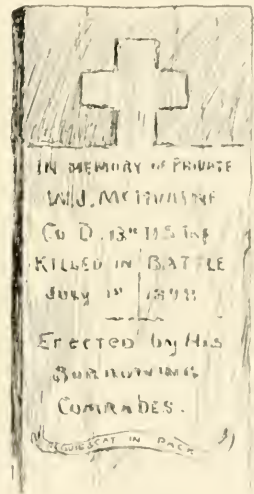 IN MEMORY OF PRIVATE
W.J.
Co D. 13th U.S Inf
KILLED IN BATTLE
JULY 1st 1898
Erected by His
SORROWING
COMRADES.
REQUIESCAT IN PACE